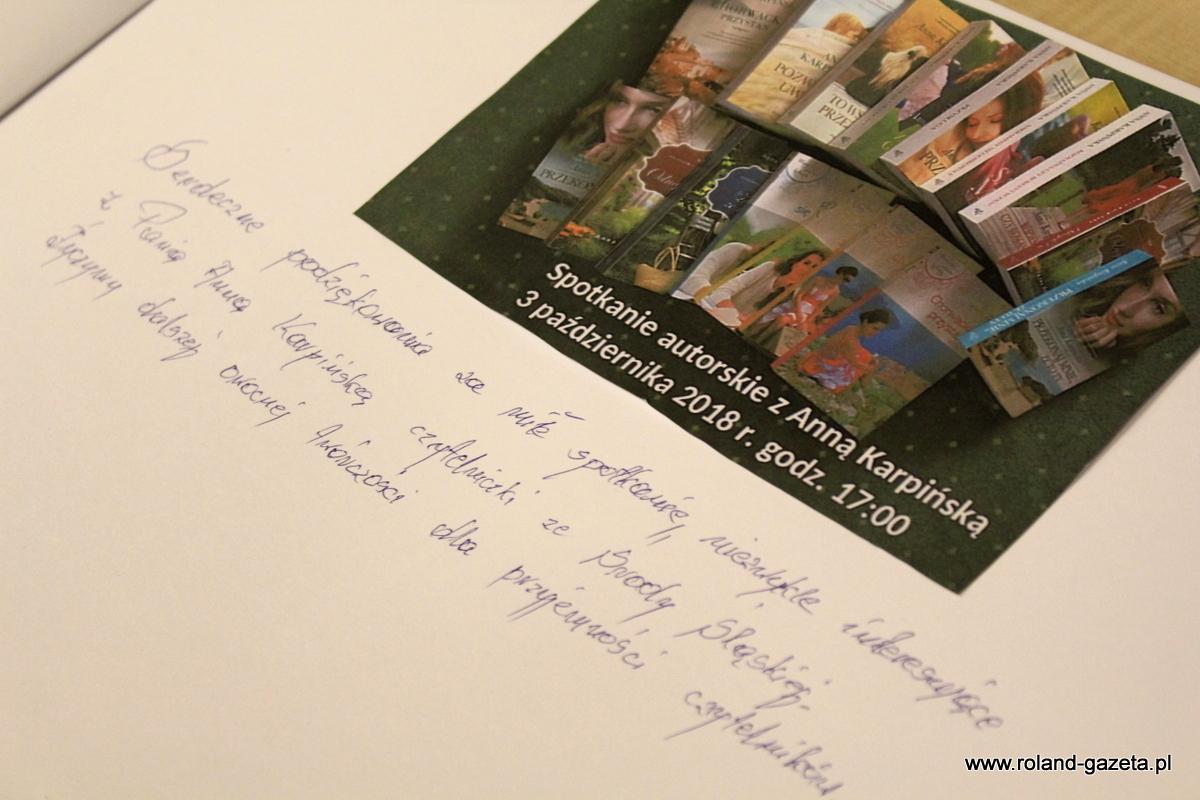 Spotkanie autorskie z Anną Karpińską
3 października 2018 r. godz. 17:00
Serdeczne podziękowania za miłe spotkanie, niezwykle interesujące
z Panią Anną Karpińską czytelniczki ze Środy Śląskiej.
Życzymy dalszej owocnej twórczości dla przyjemności czytelników
www.roland-gazeta.pl